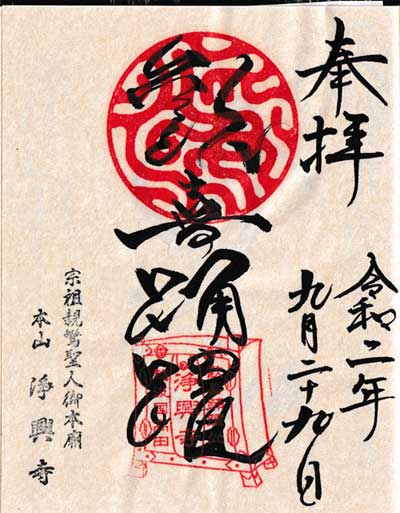 奉拝
令和二年
九月二十九日
歓喜踊躍
浄興寺
宗祖親鸞聖人御本廟
本山 浄興寺